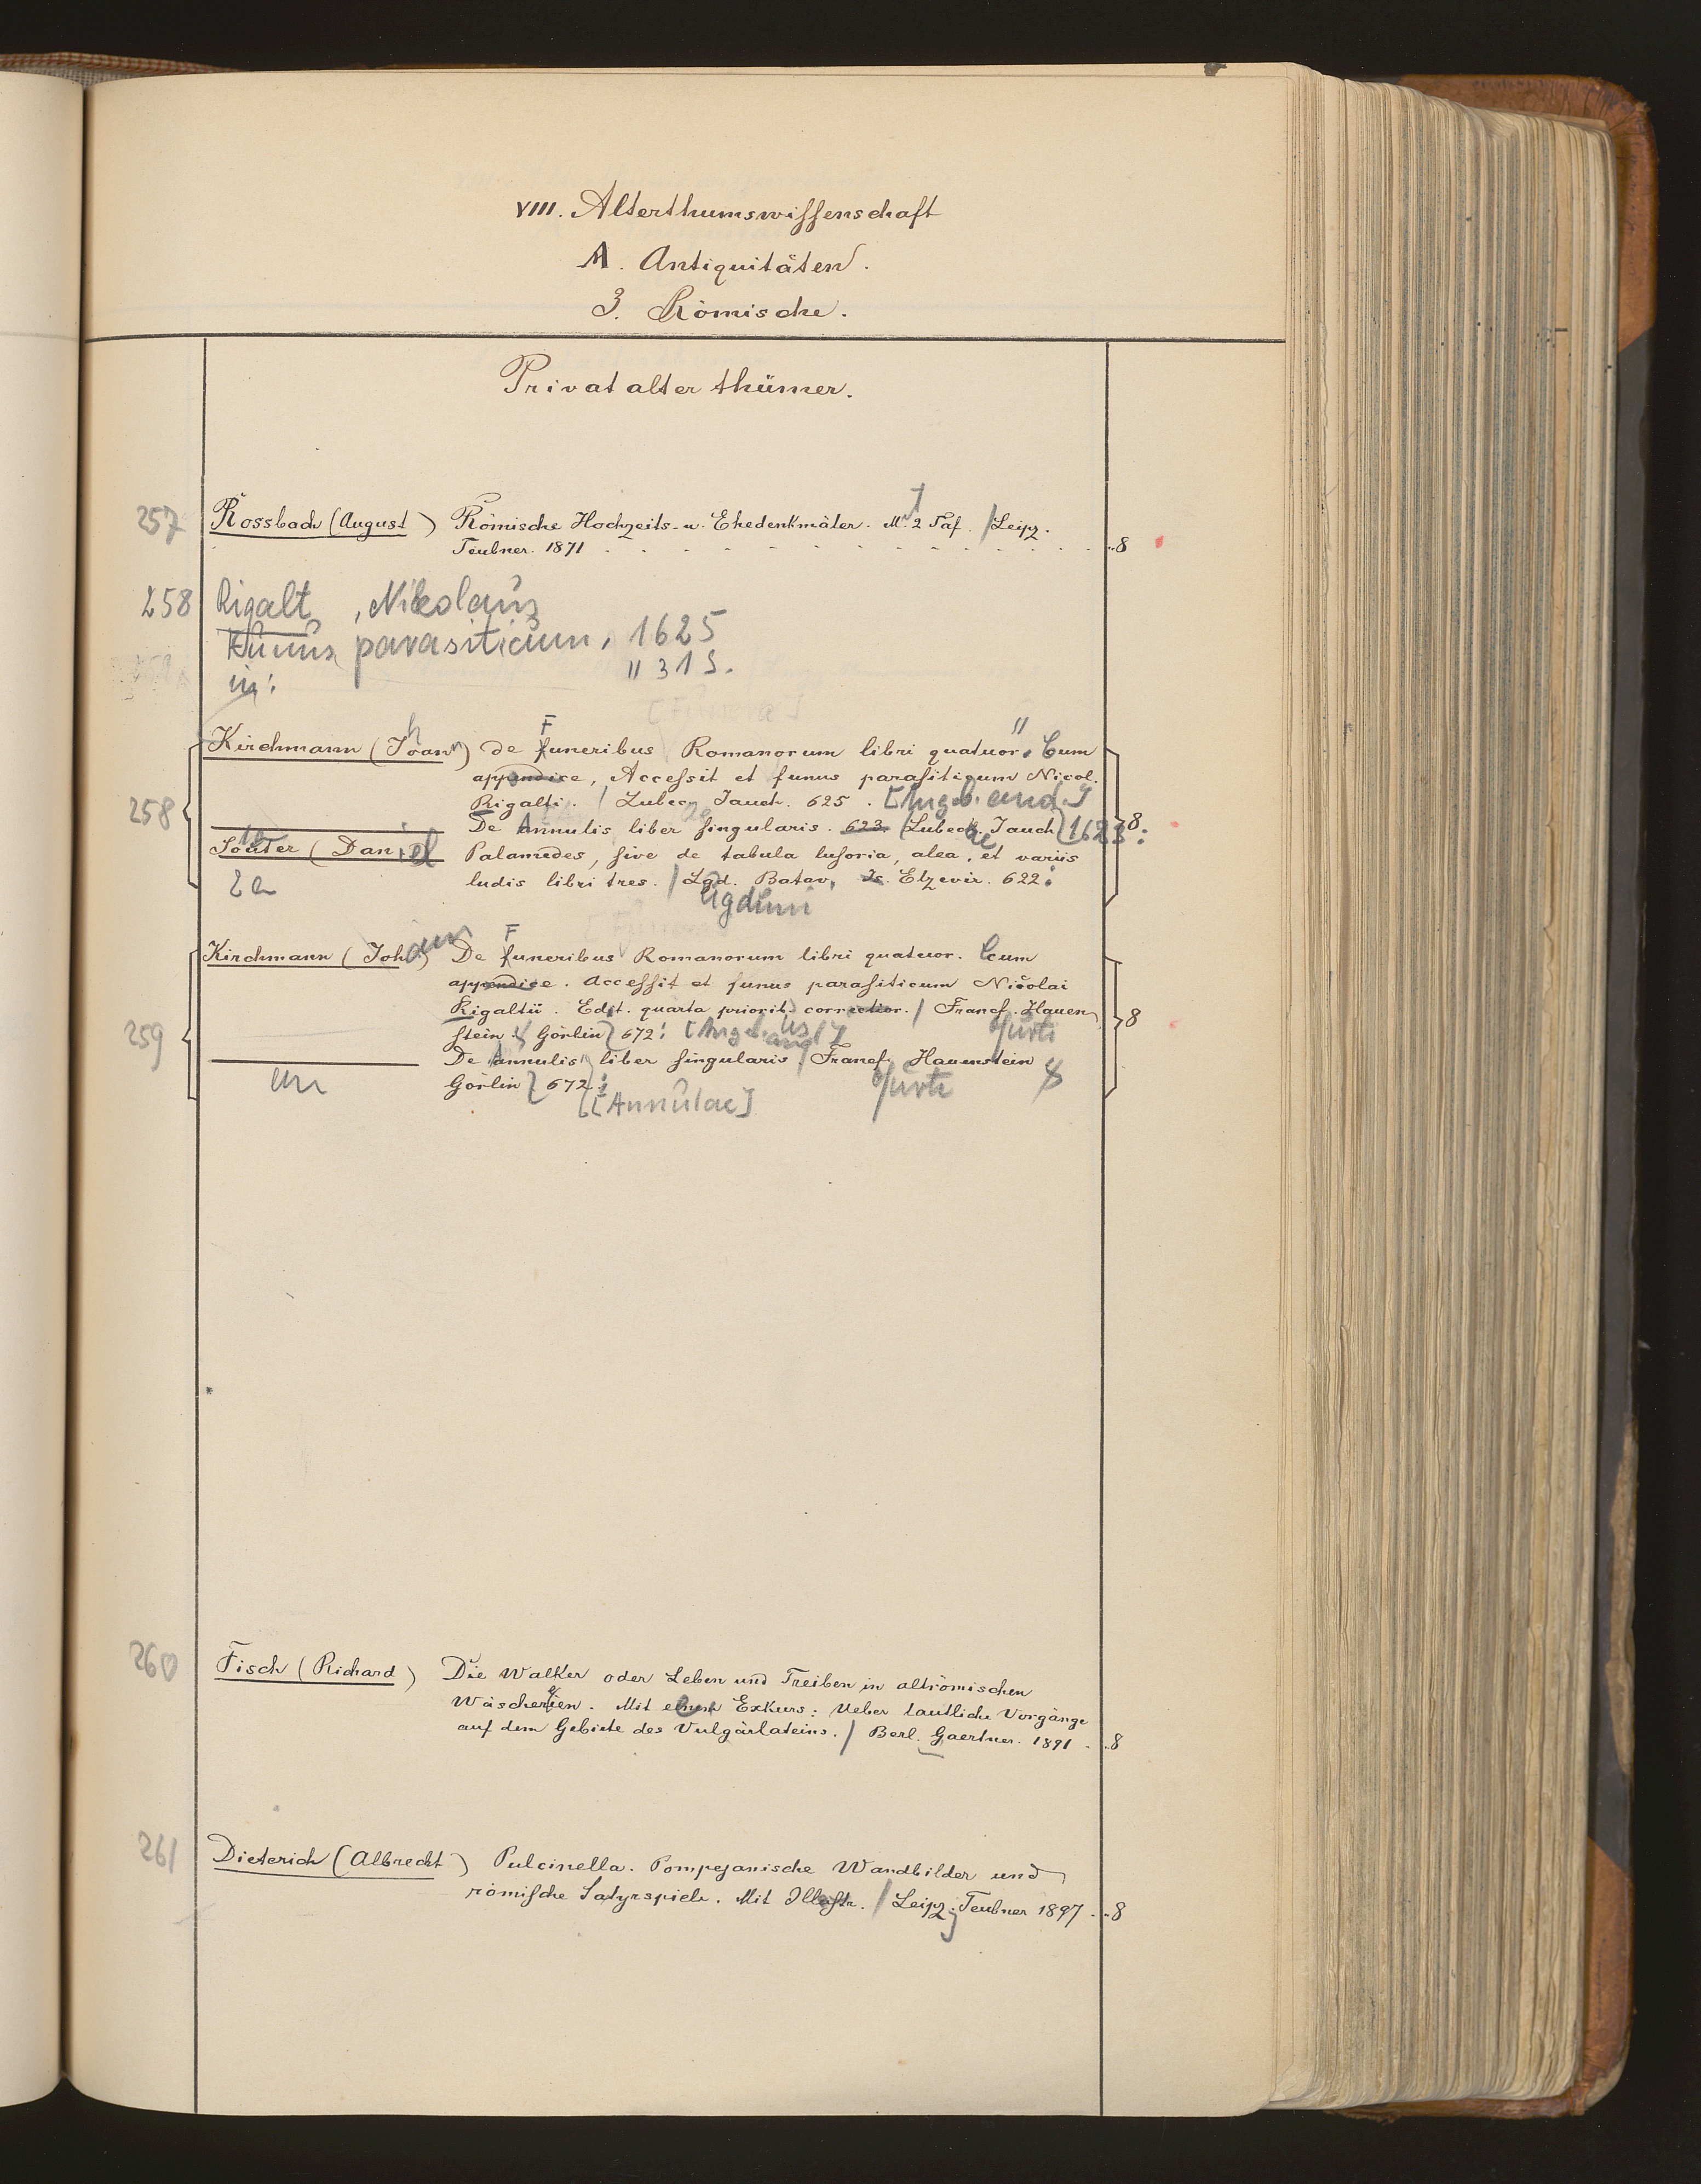 VIII. Alterthumswissenschaft
A. Antiquitäten.
3. Römische.
Privatalterthümer.
257 Rossbach (August) Römische Hochzeits- u. Ehedenkmäler. M. 2 Taf. / Leipz.
Teubner. 1871 8
258 Rigalt, Nikolaus
Funus parasiticum, 1625
" 31 S.
in:
Kirchmann (Johann) de Funeribus Romanorum libri quatuor. Cum
appendice, Accessit et funus parasiticum Nicol.
258 Rigalti. / Lubec, Jauch. 625. [Angeb. and.]
De Annulis liber singularis. 623. / Lubecae Jauch 1623: 8
Souter (Daniel Palamedes, sive de tabula lusoria, alea, et variis
ludis libri tres. / Lgd. Batav, Is. Elzevir. 622:
ugduni
Kirchmann (Johann) De Funeribus Romanorum libri quatuor. Cum
appendice. Accessit et funus parasiticum Nicolai
Rigaltii. Edit. quarta priorib, correctior. / Francf. Hauen 8
259 stein & Görlin 672:
De Annulis liber singularis / Francf. Hauenstein &
Görlin 672:
[Annulae] furti
260 Fisch (Richard) Die Walker oder Leben und Treiben in altrömischen
Wäschereien. Mit einem Exkurs: Ueber lautliche Vorgänge
auf dem Gebiete des Vulgärlateins. / Berl. Gaertner. 1891 8
261 Dieterich (Albrecht) Pulcinella. Pompejanische Wandbilder und
römische Satyrspiele. Mit Illustr. / Leipz. Teubner 1897 8